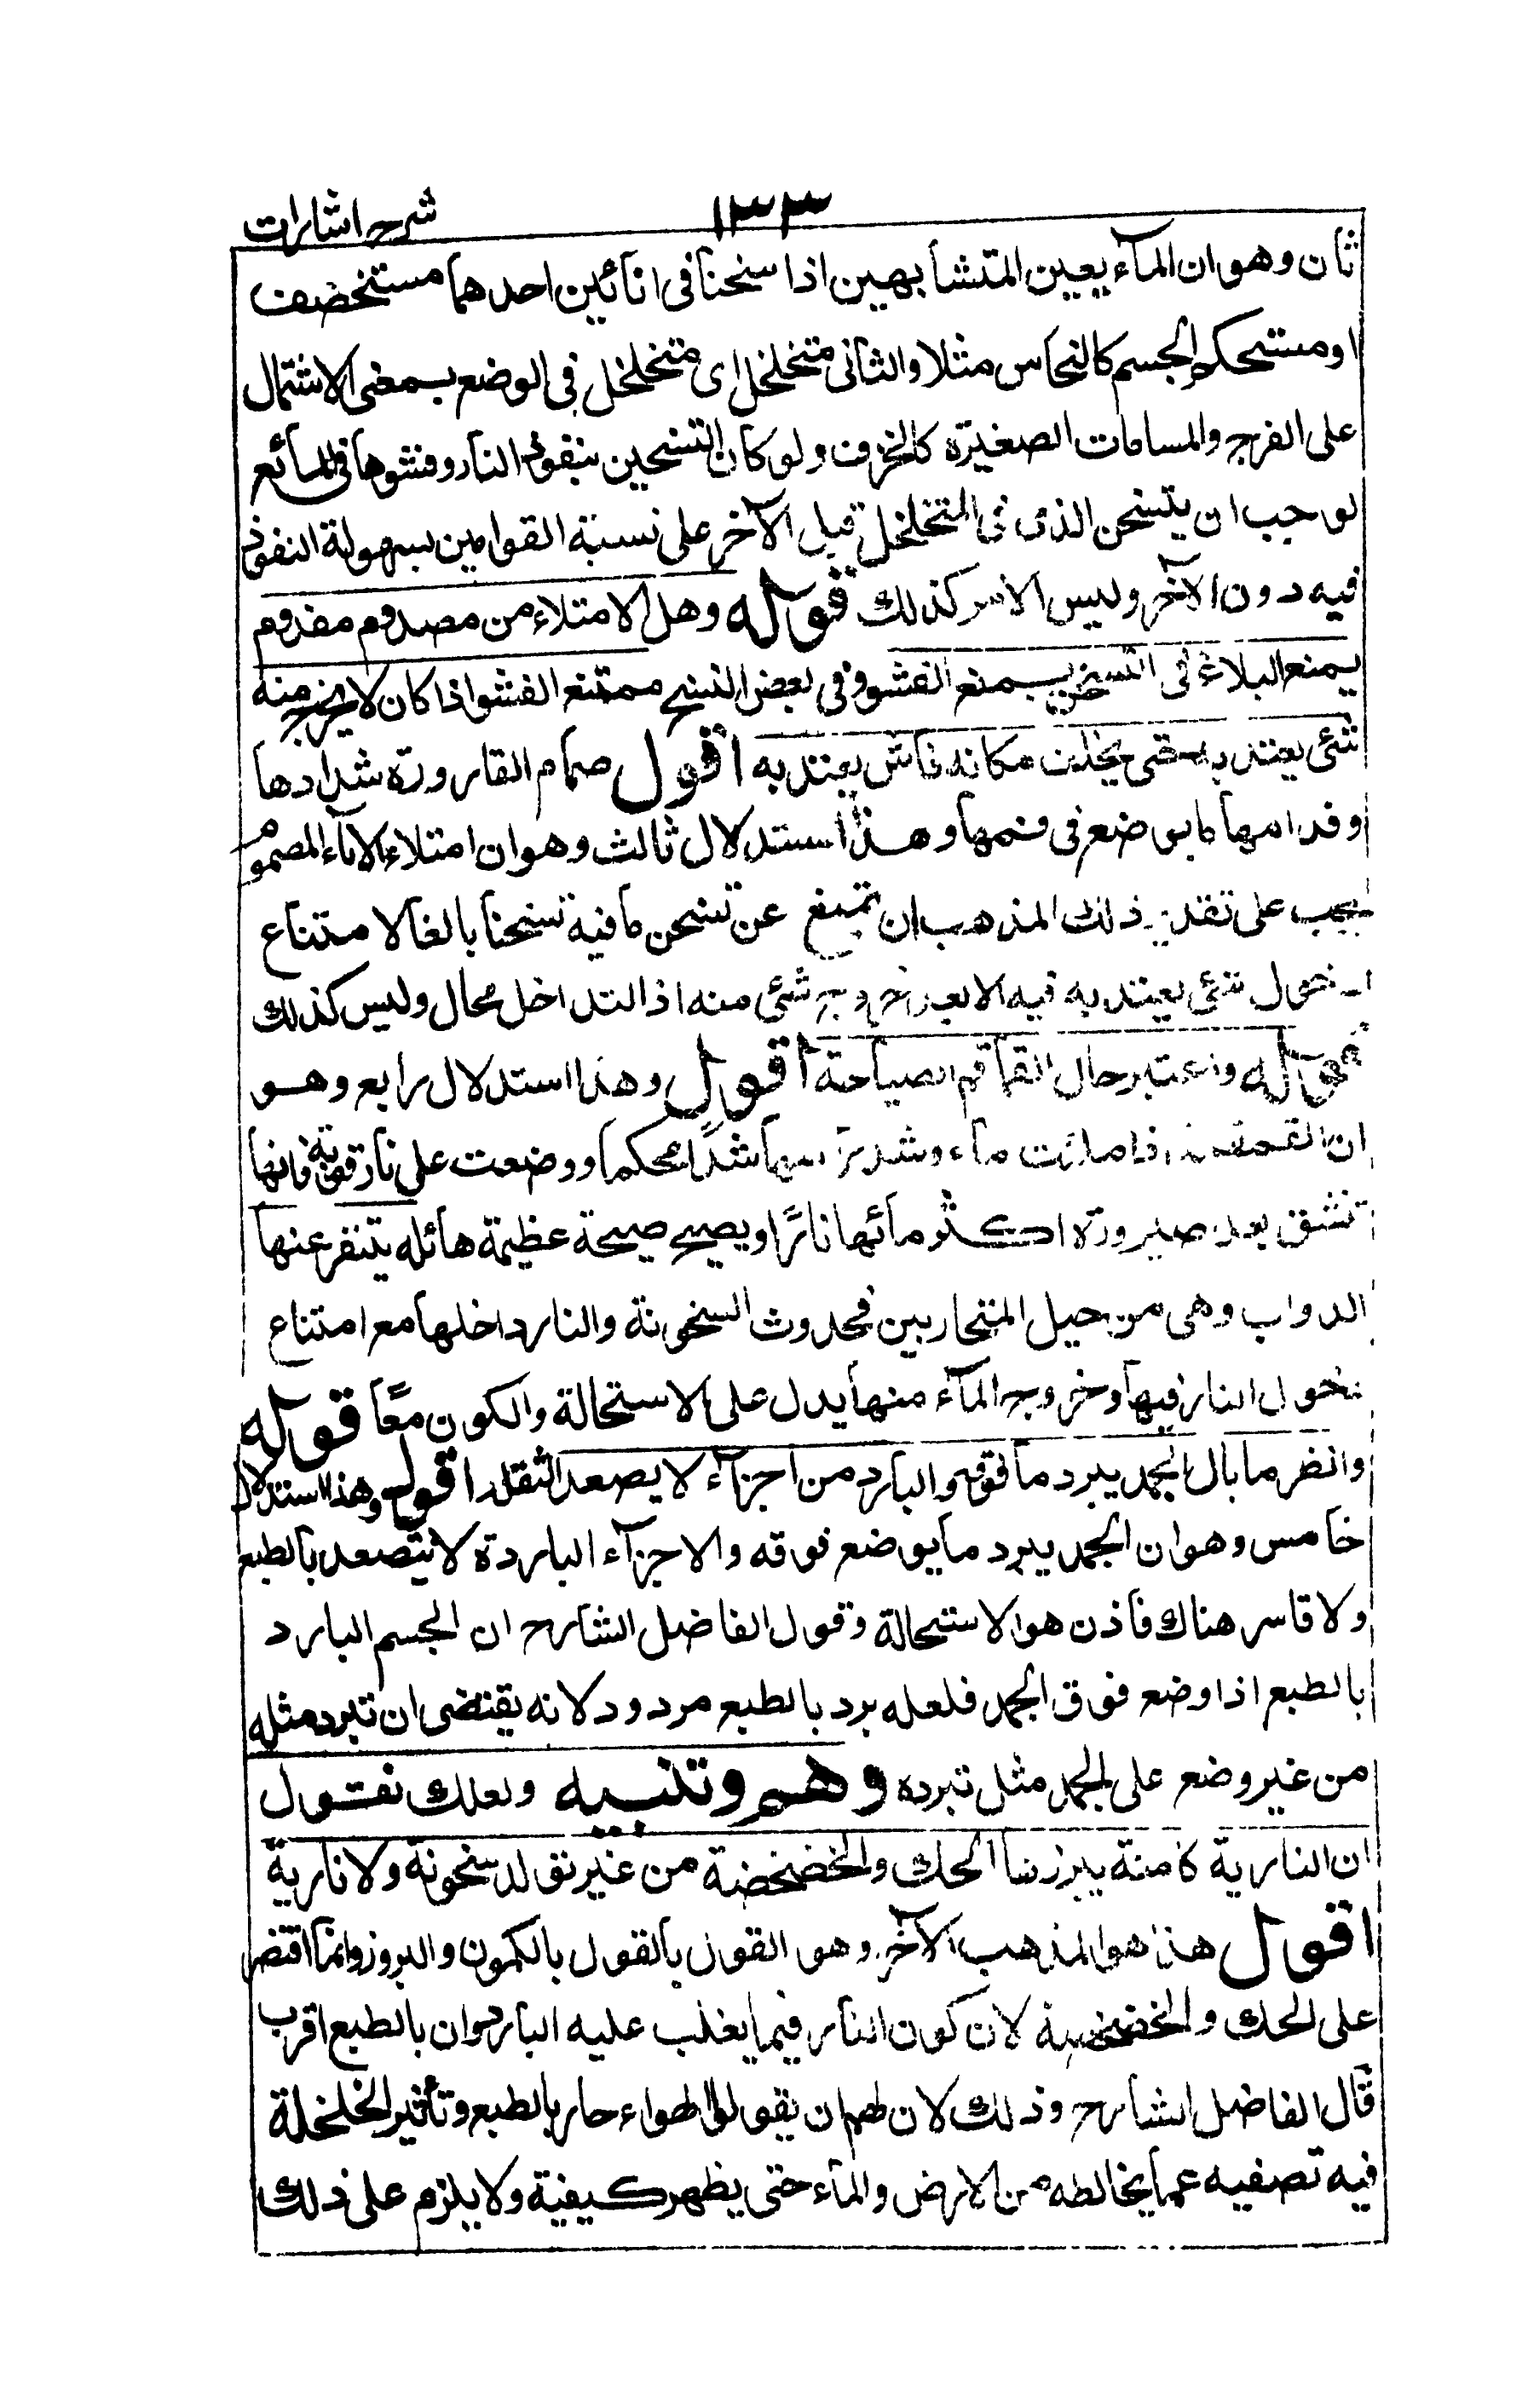 شرح اشارات
١٣٣
ثان وهو ان المآء يعين المتشابهين اذا سخنا فى انائين احدهما مستخضف
او مستحكم الجسم كالنحاس مثلا والثانى متخلخل اى متخلخل فى الوضع بمعنى الاشتمال
على الفرج والمسامات الصغيرة كالخزف ولو كان التسخين بنفوذ النار وفشوها فى المائع
لوجب ان يتسخن الذى فى المتخلخل قبل الآخر على نسبة القوامين لسهولة النفوذ
فيه دون الآخر وليس الامر كذلك قوله وهل الامتلاء من مصدوم مفدوم
يمنع البلاغ فى التسخن بسبب منع الفشو وفى بعض النسخ ممتنع الفشو اذا كان لا يخرج منه
شئ يعتد به حتى يخلف مكانه فاش يعتد به اقول صمام القارورة شدادها
وفدامها ما يوضع فى فمها وهذا استدلال ثالث وهو ان امتلاء الاناء المصموم
يجب على تقدير ذلك المذهب ان تمنع عن تسخن ما فيه تسخنا بالغا لامتناع
دخول شئ يعتد به فيه الا بعد خروج شئ منه اذ التداخل محال وليس كذلك
قوله واعتبر حال القماقم الصياحة اقول وهذا استدلال رابع وهو
ان القمقمة اذا ملئت ماء وشد رأسها شدا محكما ووضعت على نار قوية فانها
تنشق بعد صيرورة اكثر مائها نارًا ويصيح صيحة عظيمة هائله يتنفر عنها
الدواب وهى من حيل المتحاربين فحدوث السخونة والنار داخلها مع امتناع
دخول النار فيها وخروج المآء منها يدل على الاستحالة والكون معًا قوله
وانظر ما بال الجمد يبرد ما فوقه والبارد من اجزآء لا يصعد لثقله اقول وهذا استدلال
خامس وهو ان الجمد يبرد ما يوضع فوقه والاجزآء الباردة لا يتصعد بالطبع
ولا قاسر هناك فاذن هو الاستحالة وقول الفاضل الشارح ان الجسم البارد
بالطبع اذا وضع فوق الجمد فلعله برد بالطبع مردود لانه يقتضى ان تبرد مثله
من غير وضع على الجمد مثل تبرده وهم وتنبيه ولعلك تقول
ان النارية كامنة يبرزها الحك والخضخضة من غير تولد سخونة ولا نارية
اقول هذا هو المذهب الآخر وهو القول بالقول بالكمون والبروز وانما اقتصر
على الحك والخضخضة لان كون النار فيما يغلب عليه الباردان بالطبع اقرب
قال الفاضل الشارح وذلك لان لهم ان يقولوا الهواء حار بالطبع وتأثير الخلخلة
فيه تصفيه عما يخالطه من الارض والماء حتى يظهر كيفية ولا يلزم على ذلك